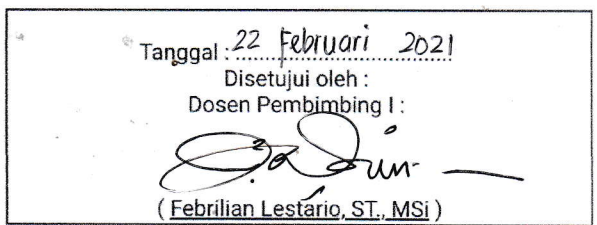 Tanggal : 22 Februari 2021
Disetujui oleh :
Dosen Pembimbing I :
( Febrilian Lestario, ST., MSi )